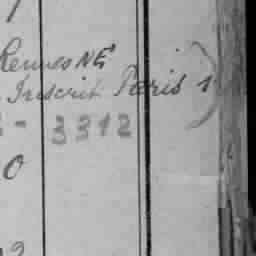 Rennes NE
Inscrit Paris 1
- 3312
0